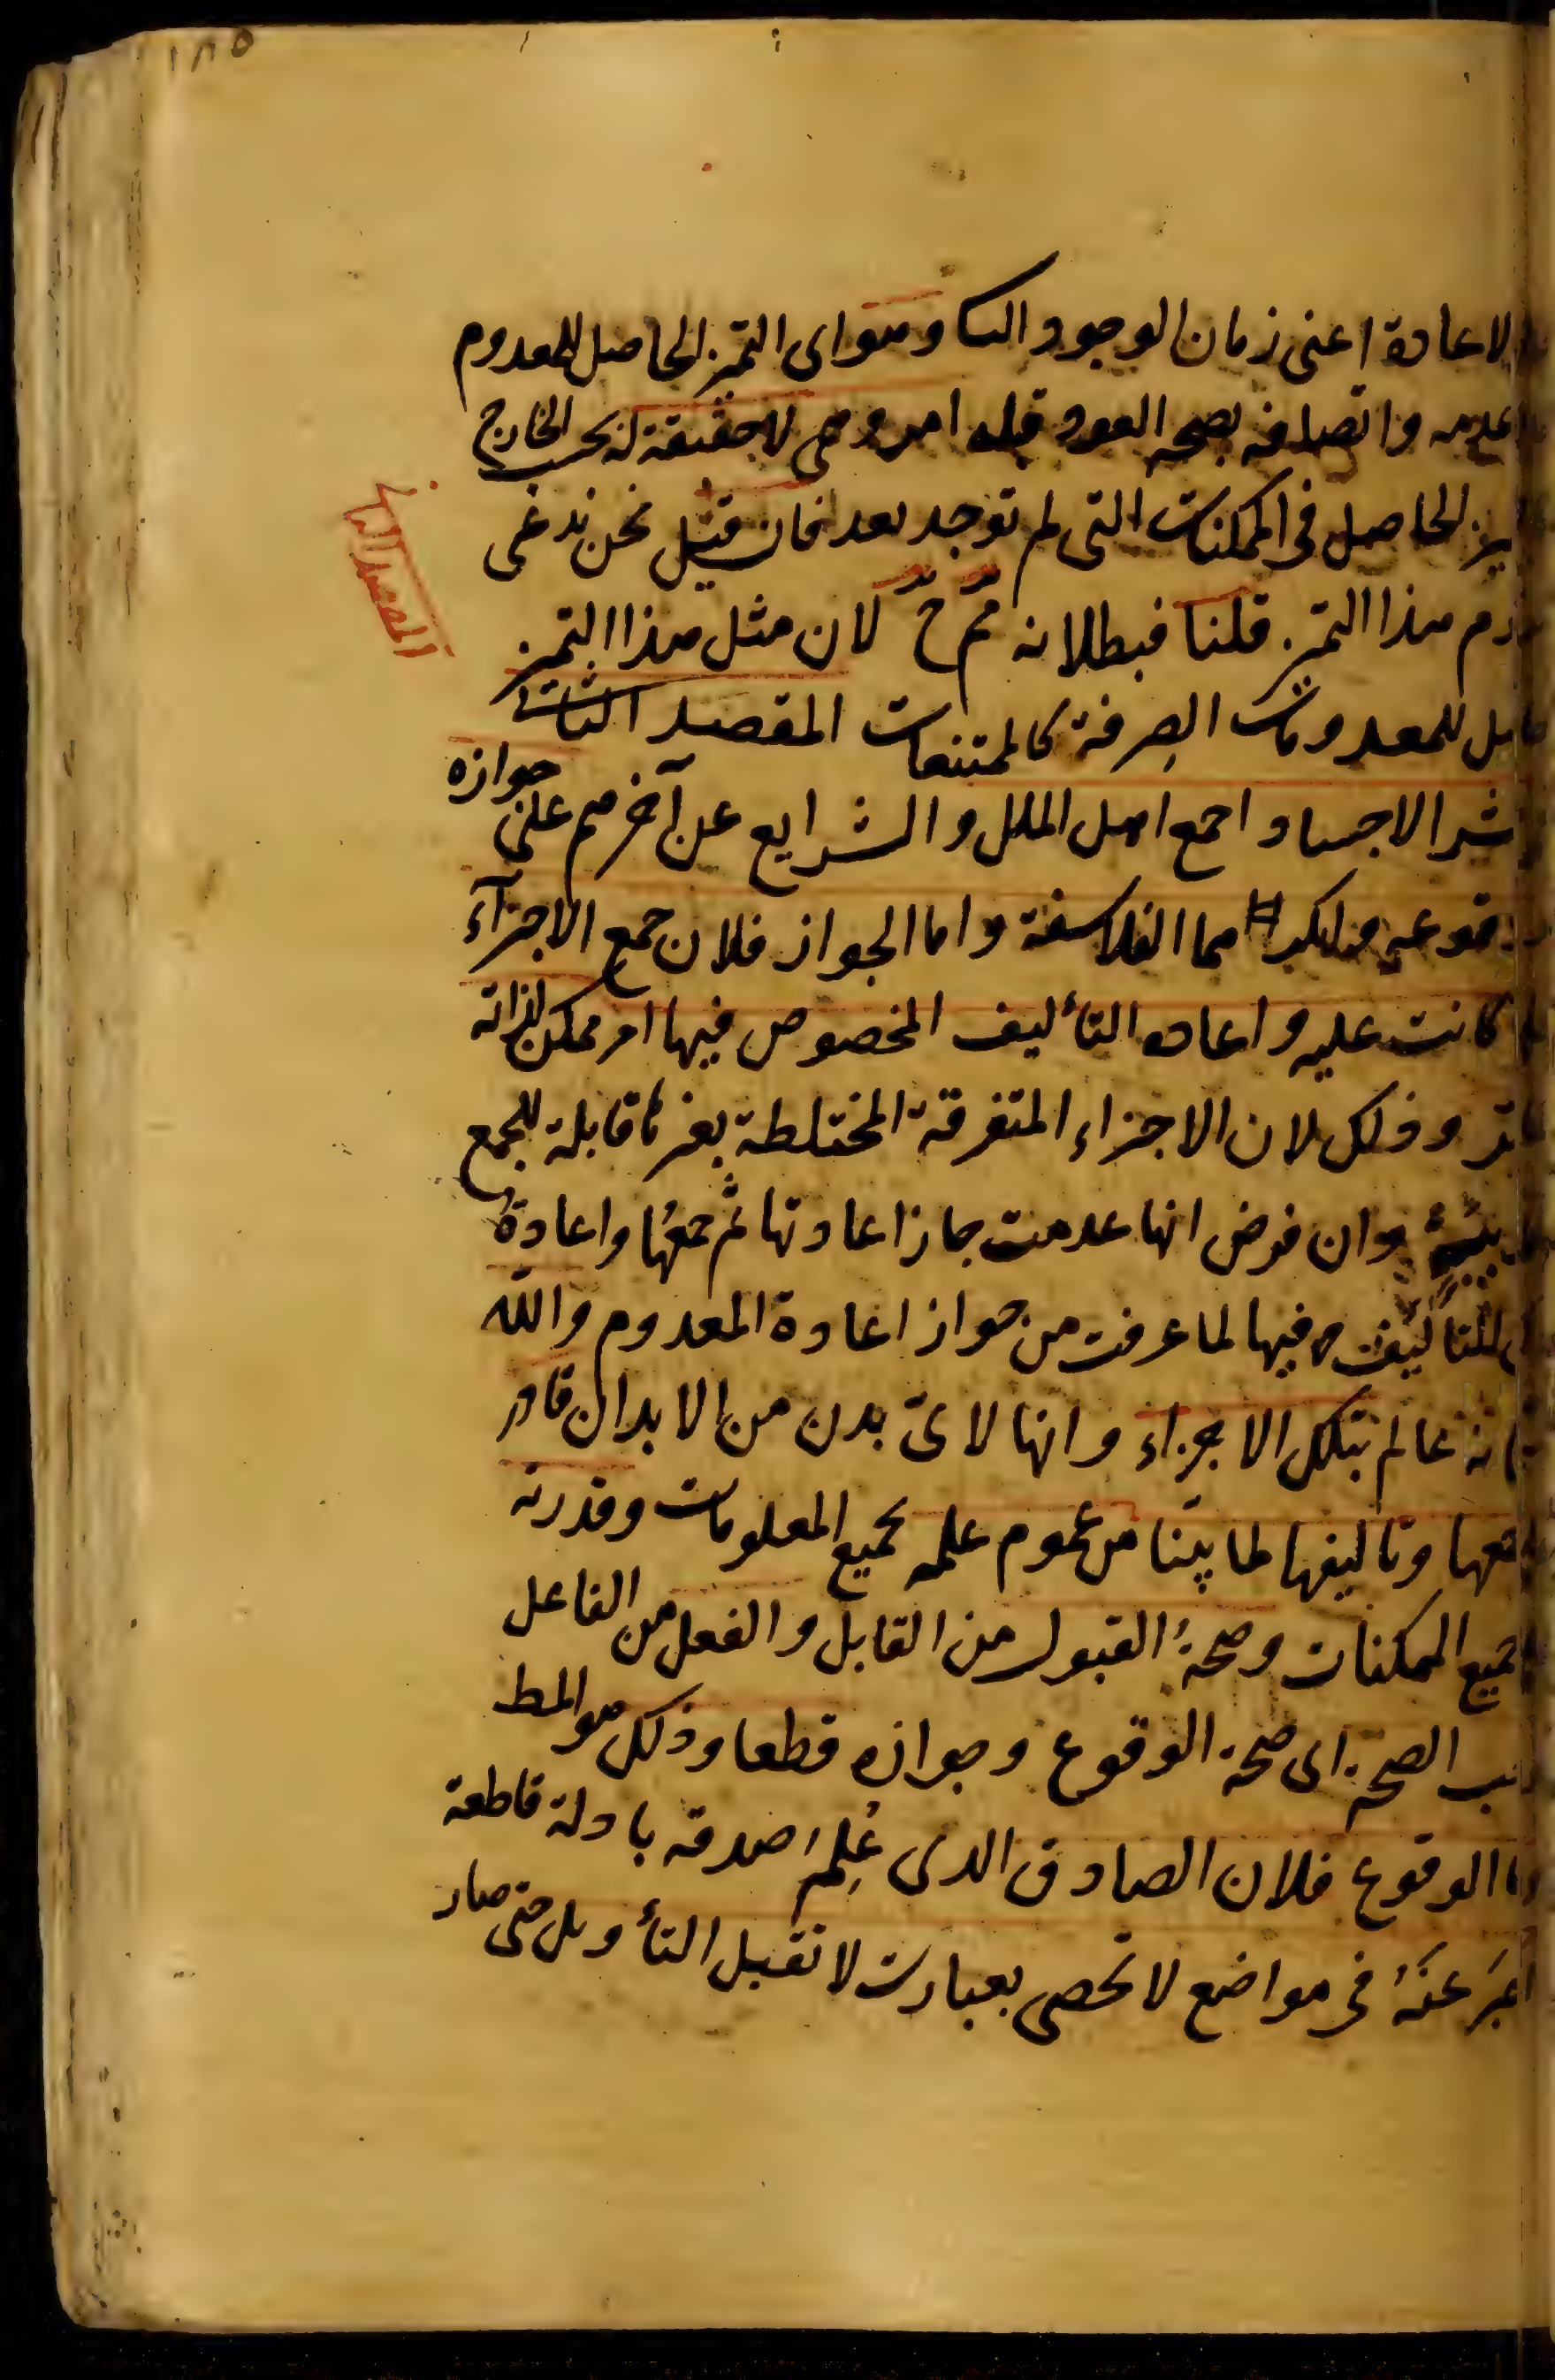 ١٨٥
الاعادة اعنى زمان الوجود الثا وهو اى التميز الحاصل للمعدوم
عدمه واتصافه بصحه العود قبله امر وهمى لا حقيقة له بحسب الخارج
الحاصل فى الممكنات التى لم توجد بعد فان قيل نحن ندعى
هذا التميز قلنا فبطلانه مم ح لان مثل هذا التميز
للمعدومات الصرفة كالممتنعات المقصد الثانى
المقصد الثانى
الاجساد اجمع اهل الملل والشرايع عن آخرهم على جوازه
وانكرهما الفلاسفة واما الجواز فلان جمع الاجزآء
كانت عليه واعاده التأليف المخصوص فيها امر ممكن لذاته
وذلك لان الاجزاء المتفرقة المختلطة بغيرها قابلة للجمع
وان فرض انها عدمت جاز اعادتها ثم جمعها واعادة
التأليف فيها لما عرفت من جواز اعادة المعدوم والله
عالم بتلك الاجزاء وانها لاىّ بدن من الابدان قادر
وتاليفها لما بيّنا من عموم علمه بجميع المعلومات وقدرته
جميع الممكنات وصحة القبول من القابل والفعل من الفاعل
الصحة اى صحة الوقوع وجوازه قطعا وذلك هو المط
الوقوع فلان الصادق الدى عُلِمَ صدقه بادلة قاطعة
عنهُ فى مواضع لا تحصى بعبارات لا تقبل التأويل حتى صار